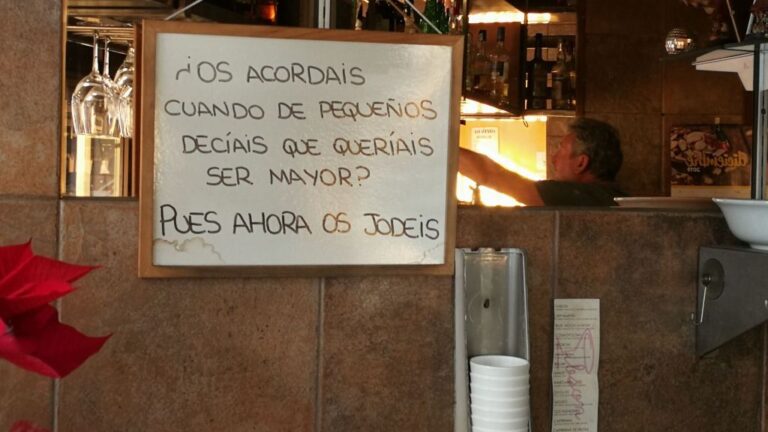 ¿OS ACORDAIS
CUANDO DE PEQUEÑOS
DECÍAIS QUE QUERÍAIS
SER MAYOR?
PUES AHORA OS JODEIS
diciembre
2019